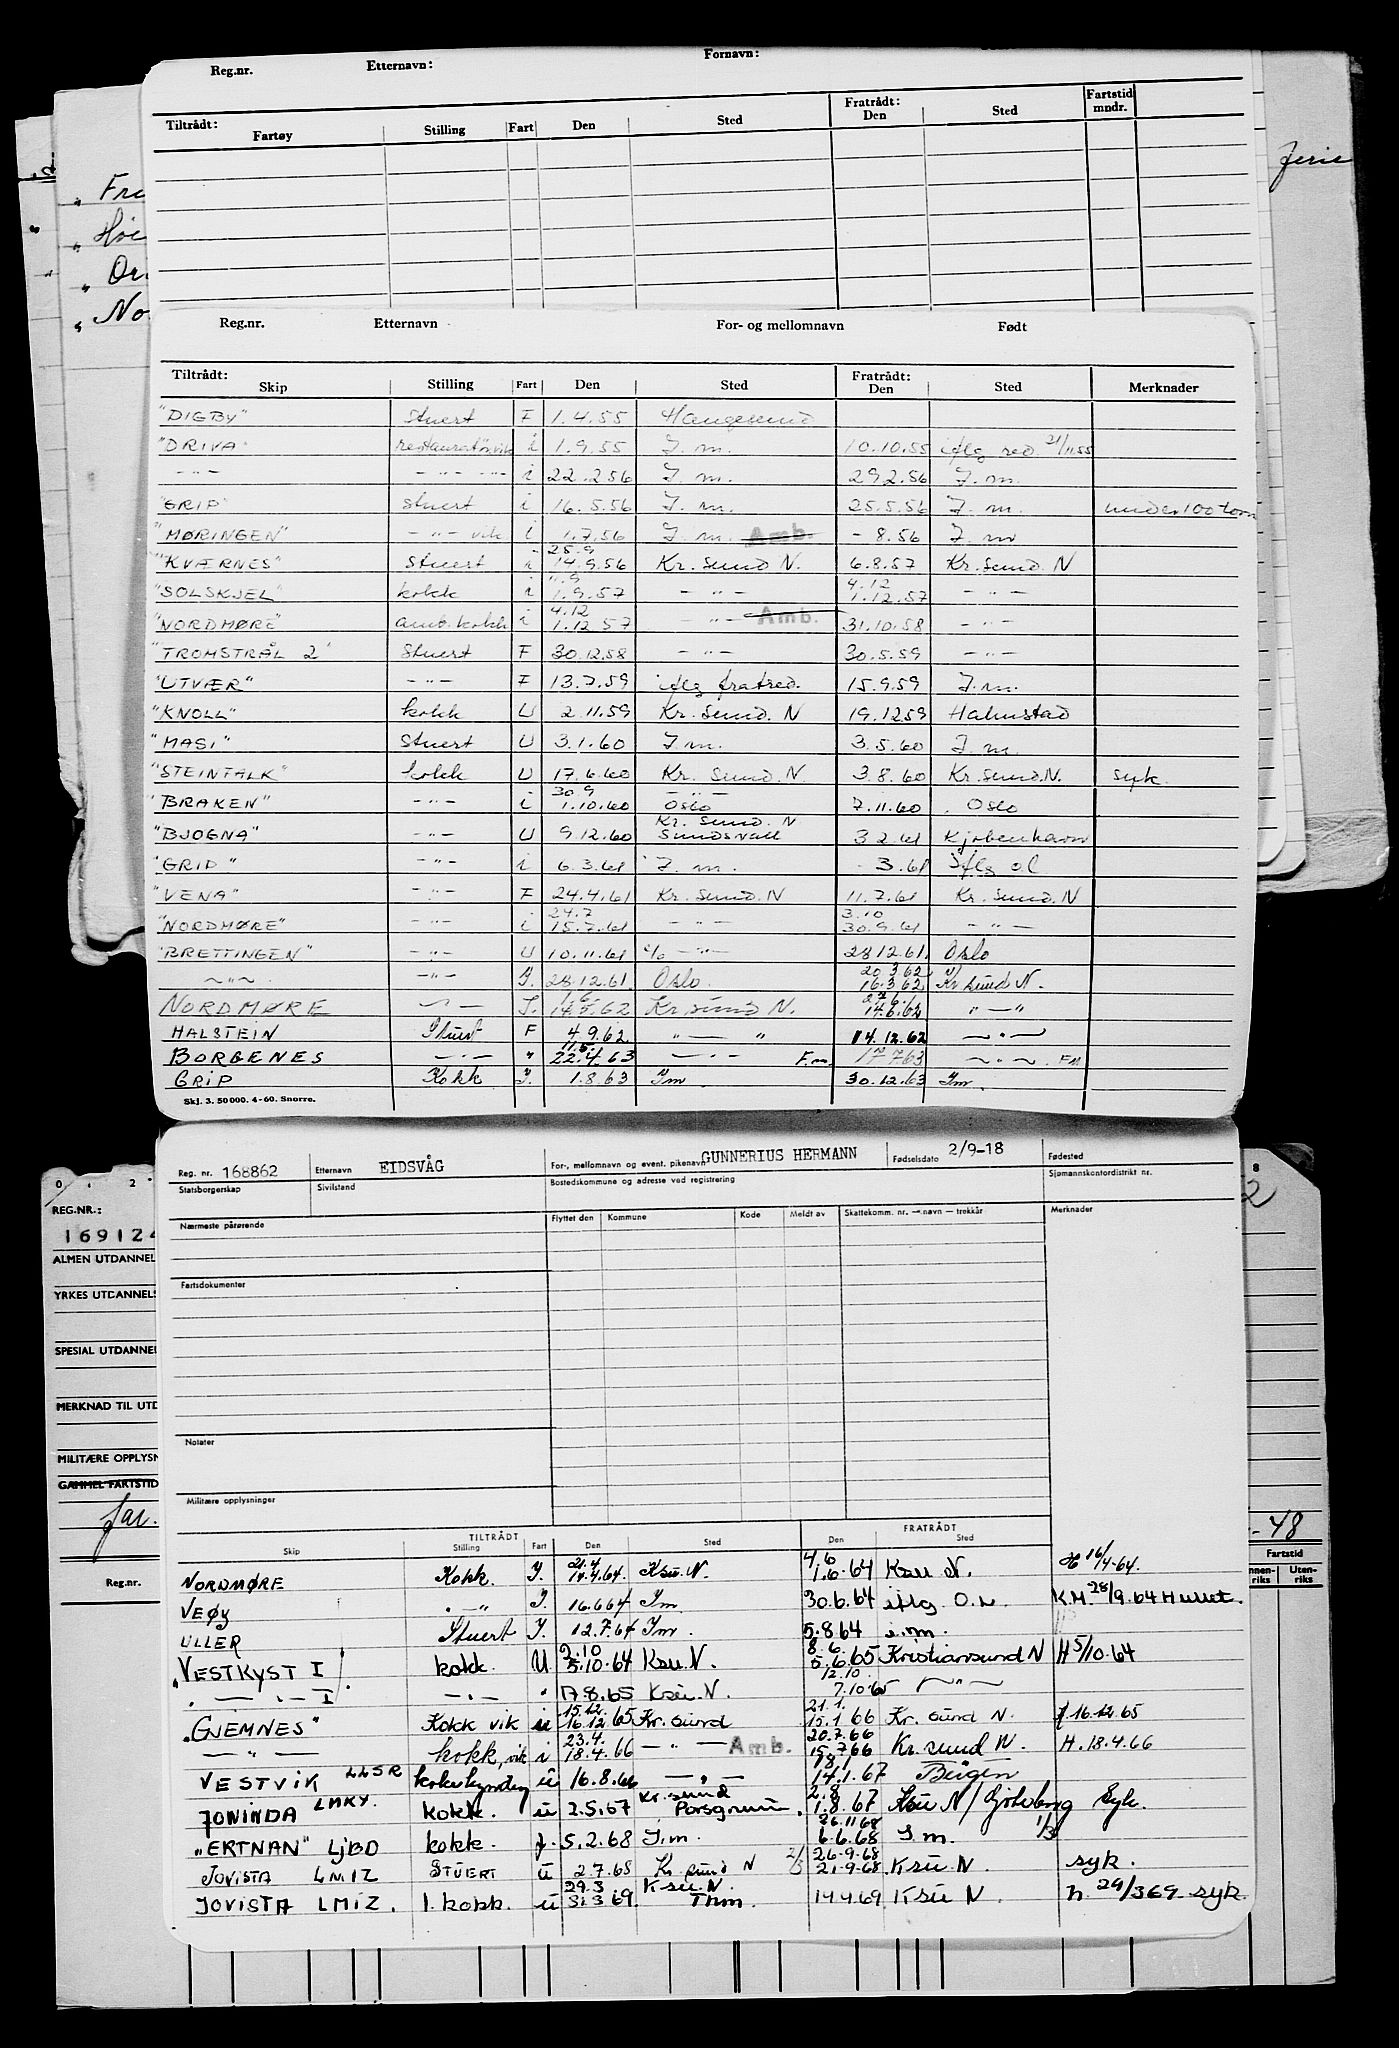 Reg.nr. Etternavn: Fornavn:
Tiltrådt: Fartøy Stilling Fart Den Sted Fratrådt: Den Sted Fartstid mndr.
Ferie
" Fre
" Høi
" No
Reg.nr. Etternavn For- og mellomnavn Født
Tiltrådt: Skip Stilling Fart Den Sted Fratrådt: Den Sted Merknader
"DIGBY" Stuert F 1.4.55 Haugesund
"DRIVA" restauratør vik i 1.9.55 I.m. 10.10.55 iflg red. 21/11.55
-"- -"- -"- i 22.2.56 I.m. 29.2.56 I.m.
"GRIP" Stuert i 16.5.56 I.m. 25.5.56 I.m. under 100 tonn
"MØRINGEN" -"- vik i 1.7.56 I.m. Amb. - 8.56 I.m
"KVÆRNES" Stuert i 25.9 14.9.56 Kr.sund N. 6.8.57 Kr.sund N
"SOLSKJEL" kokk i 11.9 1.9.57 -"- 4.12 1.12.57 -"-
"NORDMØRE" amb.kokk i 4.12 1.12.57 -"- Amb. 31.10.58 -"-
"TROMSTRÅL 2" Stuert F 30.12.58 -"- 30.5.59 -"-
"UTVÆR" -"- F 13.7.59 iflg fratred. 15.9.59 I.m.
"KNOLL" kokk U 2.11.59 Kr.sund. N 19.12.59 Halmstad
"MASI" Stuert U 3.1.60 I.m. 3.5.60 I.m
"STEINFALK" kokk U 17.6.60 Kr.sund.N. 3.8.60 Kr.sund.N. syk.
"BRAKEN" -"- i 30.9 1.10.60 -"- Oslo 7.11.60 Oslo
"BJOGNA" -"- U 9.12.60 Kr.sund. N Sundsvall 3.2.61 Kjøbenhavn
"GRIP" -"- i 6.3.61 I.m. - 3.61 iflg o.l
"VENA" -"- F 24.4.61 Kr.sund.N 11.7.61 Kr.sund.N
"NORDMØRE" -"- i 24.7 15.7.61 -"- 3.10 30.9.61 -"-
"BRETTINGEN" -"- U 10.11.61 % -"- 28.12.61. Oslo
-"- -"- I. 28.12.61. Oslo. 20.3.62 16.3.62 Kr sund N.
NORDMØRE -"- I. 14.5.62 Kr.sund N. 27.6. 14.6.62 "-"
HALSTEIN Stuert F 4.9.62 "-" 14.12.62 -"-
BORGENES -"- " 11.5. 22.4.63 -"- F.m. 17.7.63 -"- F.M
GRIP Kokk I. 1.8.63 Im 30.12.63 Im.
Skj. 3. 50 000. 4-60. Snorre.
REG.NR.:
16912
ALMEN UTDANNEL
YRKES UTDANNELS
SPESIAL UTDANNEL
MERKNAD TIL UTD
MILITÆRE OPPLYSN
GAMMEL FARTSTID
Jar.
Reg.nr.
8
2
- 48
Fartstid
nnen-riks Uten-riks
Reg. nr. 168862 Etternavn EIDSVÅG For-, mellomnavn og event. pikenavn GUNNERIUS HERMANN Fødselsdato 2/9-18 Fødested
Statsborgerskap Sivilstand Bostedskommune og adresse ved registrering Sjømannskontordistrikt nr.
Nærmeste pårørende Flyttet den Kommune Kode Meldt av Skattekomm. nr. — navn — trekkår Merknader
Fartsdokumenter
Notater
Militære opplysninger
TILTRÅDT FRATRÅDT
Skip Stilling Fart Den Sted Den Sted
NORDMØRE Kokk. I. 21.4 14.4.64. Ksu.N. 4.6 1.6.64 Ksu N. H 16/4-64.
VEØY -"- I. 16.6.64 Im 30.6.64 iflg. O.L K.M. 28/9.64 Hullet.
ULLER Stuert I. 12.7.64 Im. 5.8.64 i.m.
"VESTKYST I kokk. U 9.10 5.10.64 Ksu.N. 8.6. 5.6.65 Kristiansund N H 5/10-64
-"- I -"- " 17.8.65 Ksu.N. 12.10. 7.10.65 -"-
"GJEMNES" Kokk vik u 15.12. 16.12.65 Kr.sund 21.1. 15.1.66 Kr. sund N. 16.12.65
-"- kokk, vik i 23.4. 18.4.66 -"- Amb. 20.7.66 15.7.66 Kr.sund N. H. 18.4.66
VESTVIK LLSR ü 16.8.66 -"- 14.1.67 Bergen
JONINDA LMKY. kokk. ü 2.5.67 Kr.sund Porsgrunn. 2.8 1.8.67 Ksu N/Göteborg Syk.
"ERTNAN" LJBD kokk. 5.2.68 I.m. 26.11.68 6.6.68 I.m. 1/3
JOVISTA LMIZ STUERT ü 2.7.68 Kr sund N 2/5 26.9.68 21.9.68 Ksu.N. syk.
JOVISTA LMIZ. 1. kokk. ü 29.3 31.3.69. Ksu.N. Thm. 14.4.69 Ksu N. h. 29/369 syk